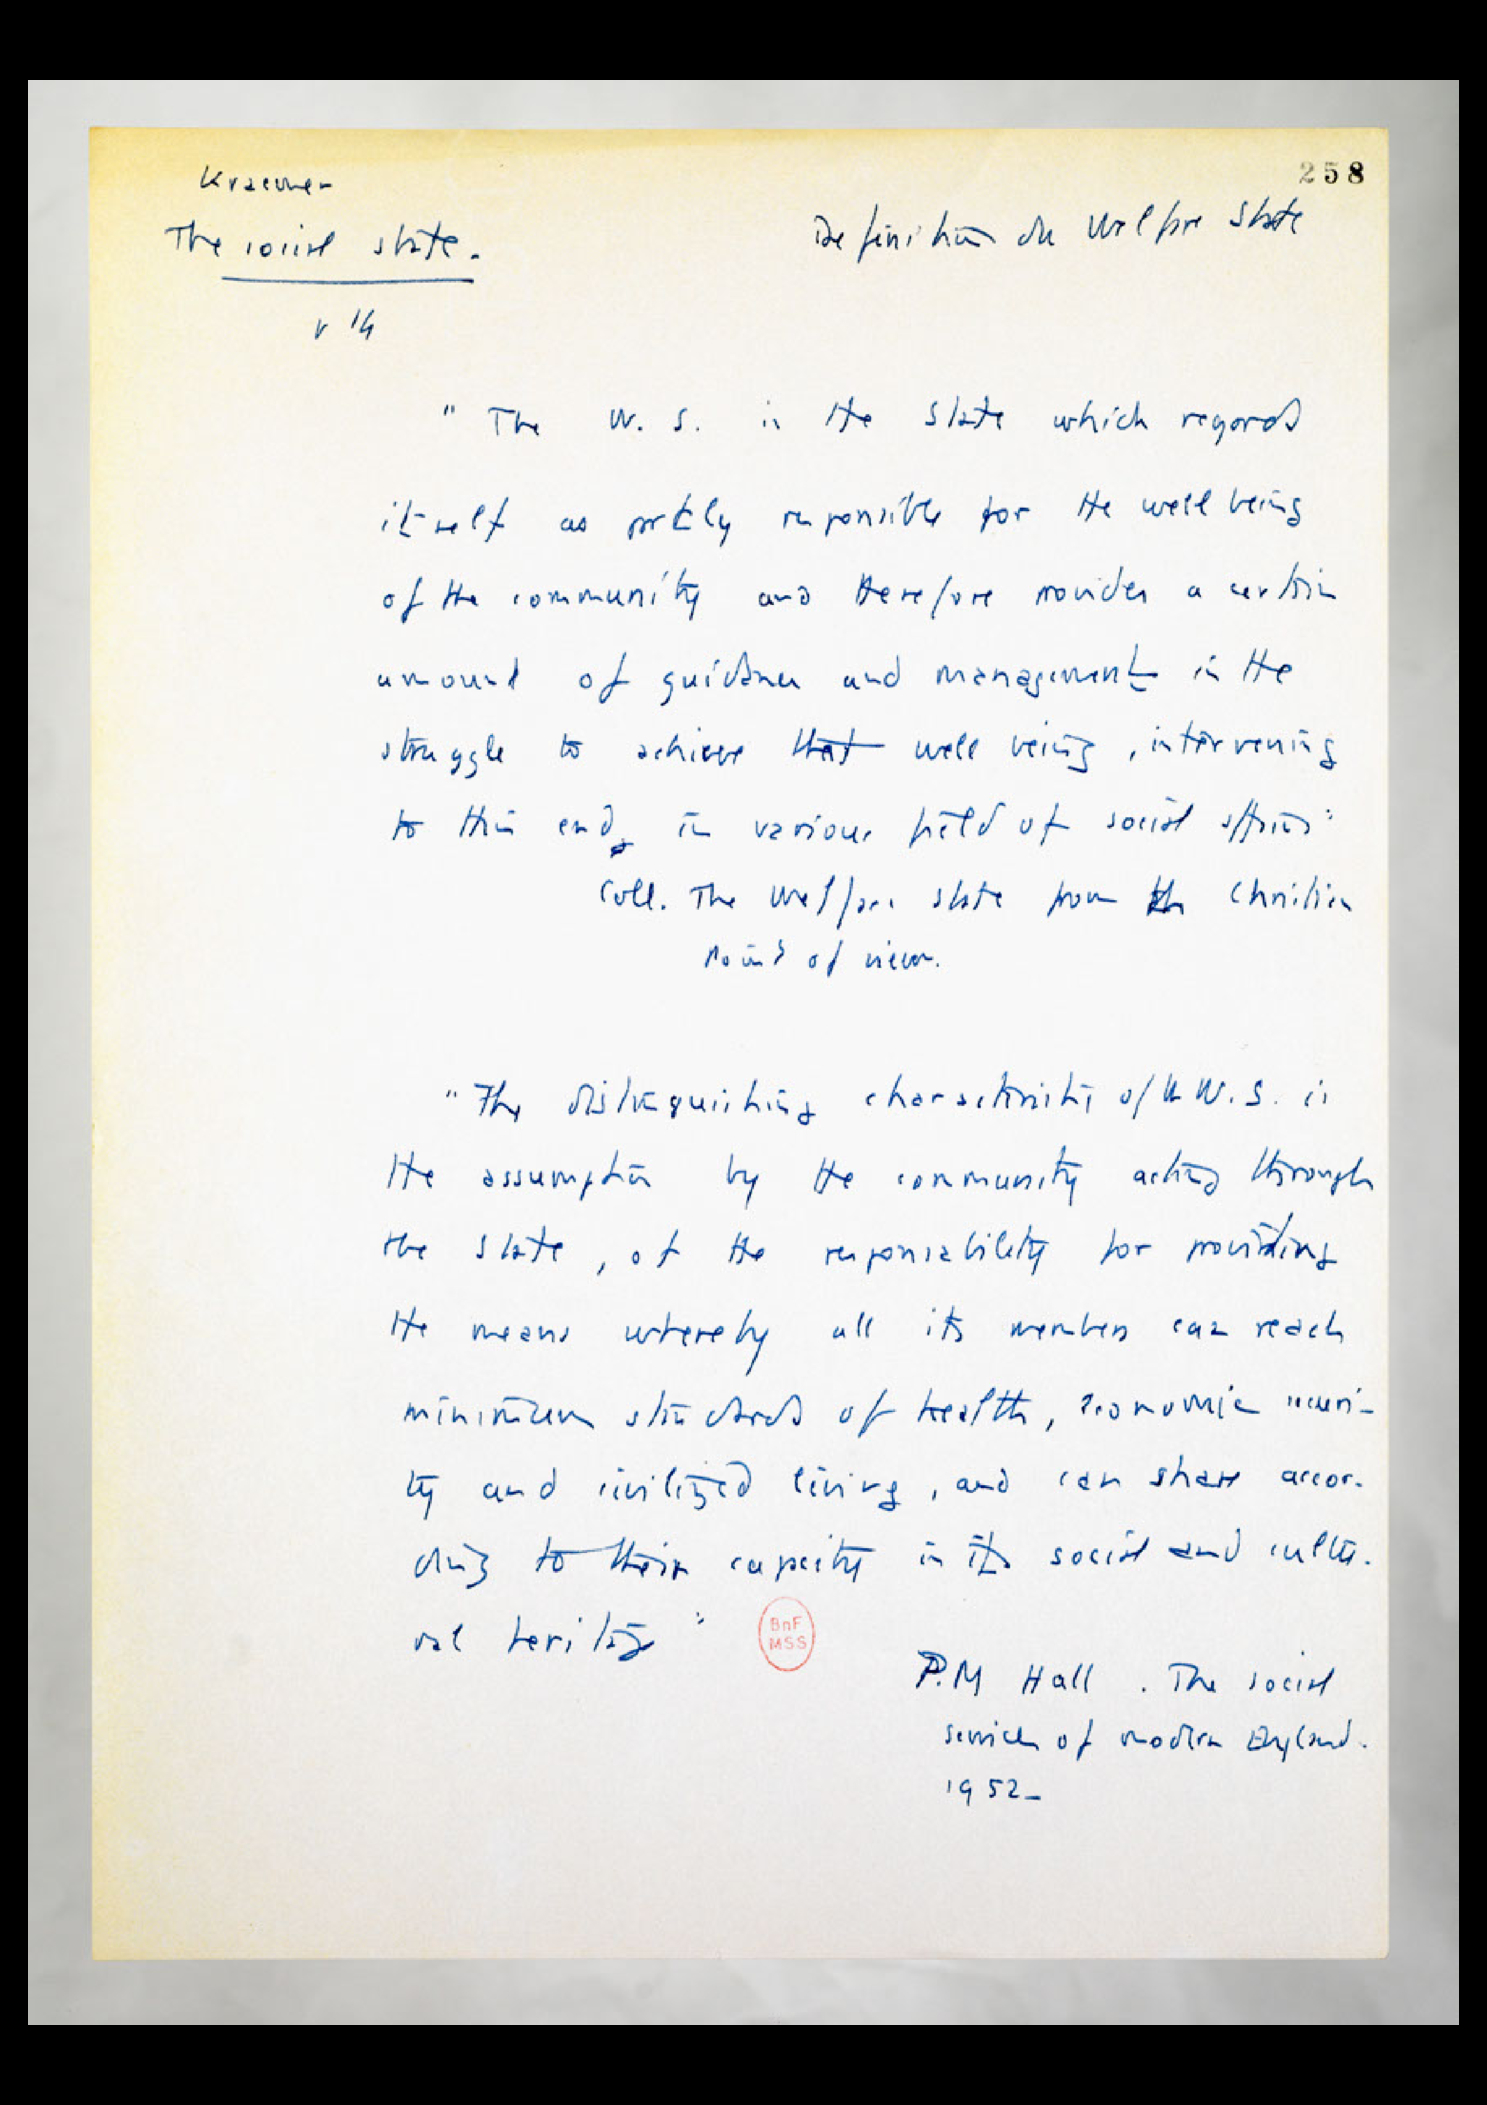 258
Kraemer
The social state.
Definition du Welfare State
p 14
" The W. S. is the state which regards
itself as partly responsible for the well being
of the community and therefore provides a certain
amount of guidance and management in the
struggle to achieve that well being, intervening
to this end, in various field of social affairs"
Coll. The Welfare state from the Christian
point of view.
" The distinguishing characteristic of the W.S. is
the assumption by the community acting through
the state, of the responsability for providing
the means whereby all its members can reach
minimum standards of health, economic securi-
ty and civilized living, and can share accor-
ding to their capacity in its social and cultu-
ral heritage "
BnF
MSS
P.M Hall. The social
services of modern England.
1952_